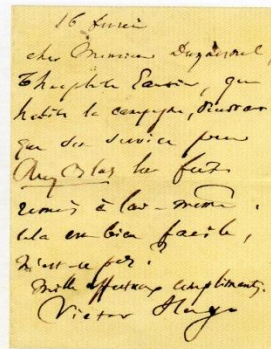 16 février
cher Monsieur Duquesnel,
Théophile Gautier, qui
habite la campagne, désirerait
que son service pour
Ruy Blas lui fût
remis à lui-même.
cela est bien facile,
n'est-ce pas ?
mille affectueux compliments.
Victor Hugo